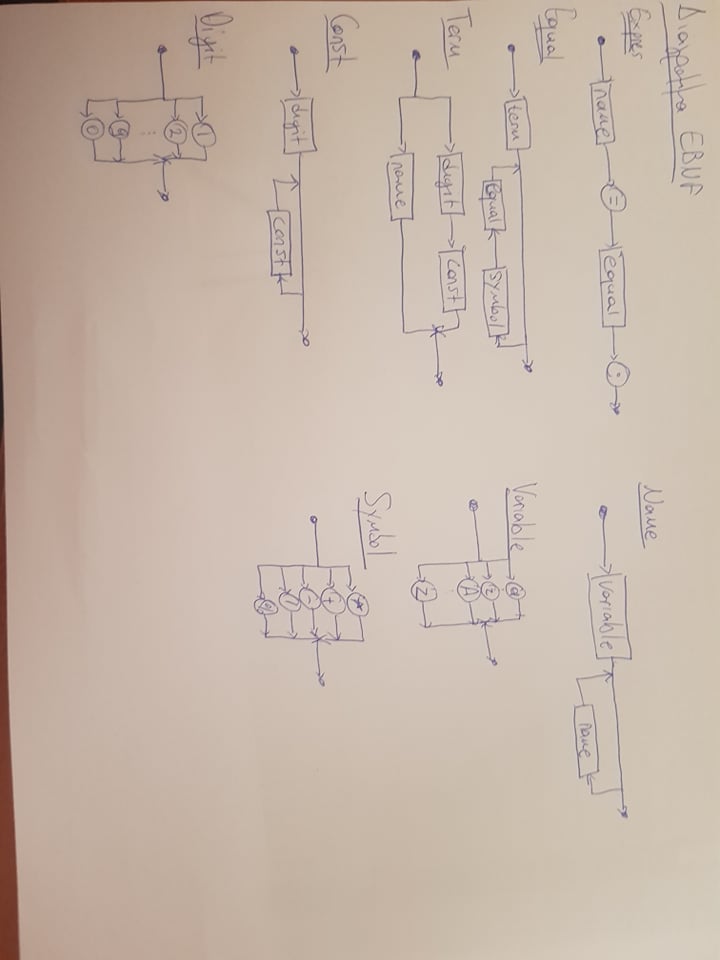 Διαγραμμα EBNF
Expres
name = equal ;
Equal
term
equal symbol
Term
digit const
name
Const
digit
const
Digit
1
2
⋮
9
0
Name
variable
name
Variable
a
z
A
Z
Symbol
*
+
-
/
%